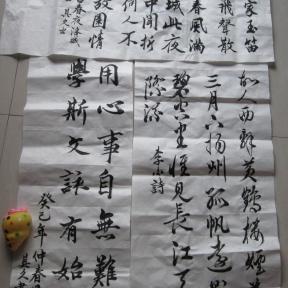 家玉笛
飛聲散
春風滿
城此夜
中聞折
何人不
故園情
春夜洛城
故人西辭黃鶴樓煙
三月下揚州孤帆遠影
碧空盡惟見長江天
際流 李白詩
用心事自無難
學斯文該有始
癸巳年仲春月